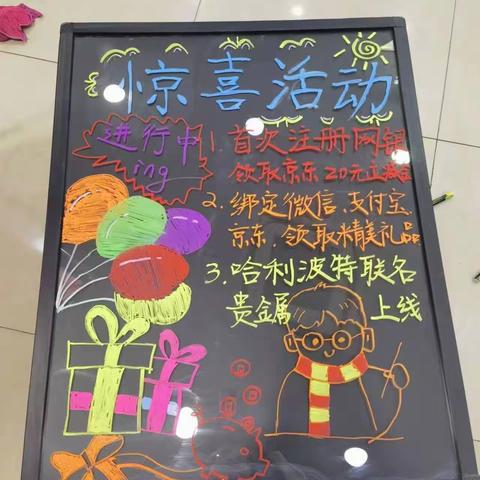 惊喜活动
进行中
ing
1.首次注册网银
领取京东20元立减金
2.绑定微信、支付宝、
京东,领取精美礼品
3.哈利波特联名
贵金属 上线